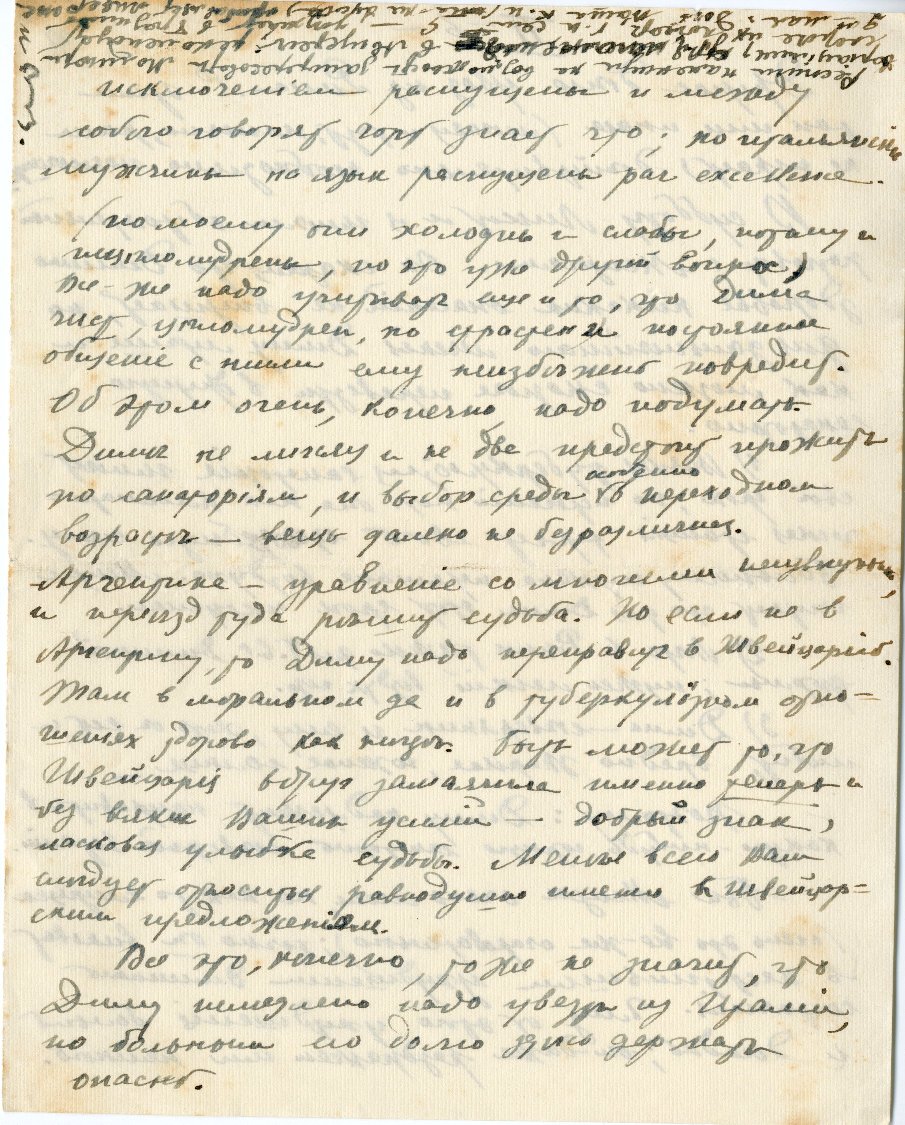 исключенiем распущены и между
собою говорят чорт знает что; но итальянскiе
мужчины на язык распущены par excellence.
(по моему они холодны и слабы, потому и
нецѣломудрены, но это уже другой вопрос)
Все-же надо учитывать еще и то, что Дима
чист, цѣломудрен, но страстен и постоянное
общенiе с ними ему неизбѣжно повредит.
Об этом очень, конечно надо подумать.
Димѣ не мѣсяц и не два предстоит прожить
по санаторiям, и выбор среды особенно в переходном
возрастѣ — вещь далеко не безразличная.
Аргентина — уравненiе со многими неизвѣстными,
и переѣзд туда рѣшит судьба. Но если не в
Аргентину, то Диму надо переправить в Швейцарiю.
Там в моральном да и в туберкулозном отно-
шенiях здорово как нигдѣ. Быть может то, что
Швейцарiя вдруг замаячила именно теперь и
без всяких Ваших усилiй — добрый знак,
ласковая улыбка судьбы. Менѣе всего Вам
слѣдует относиться равнодушно именно к Швейцар-
ским предложенiям.
Все это, конечно, тоже не значит, что
Диму немедленно надо увезти из Италiи,
но больным его долго здѣсь держать
опасно.